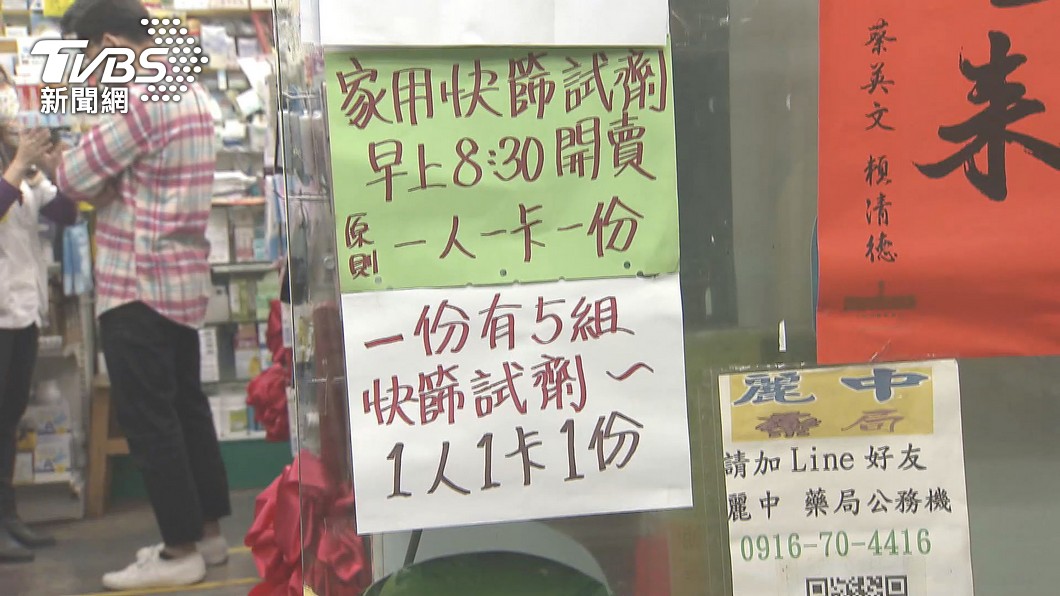 TVBS
新聞網
家用快篩試劑
早上8:30開賣
原則 一人一卡一份
一份有5組
快篩試劑～
1人1卡1份
來
蔡英文 賴清德
麗中
藥局
請加Line好友
麗中 藥局公務機
0916-70-4416